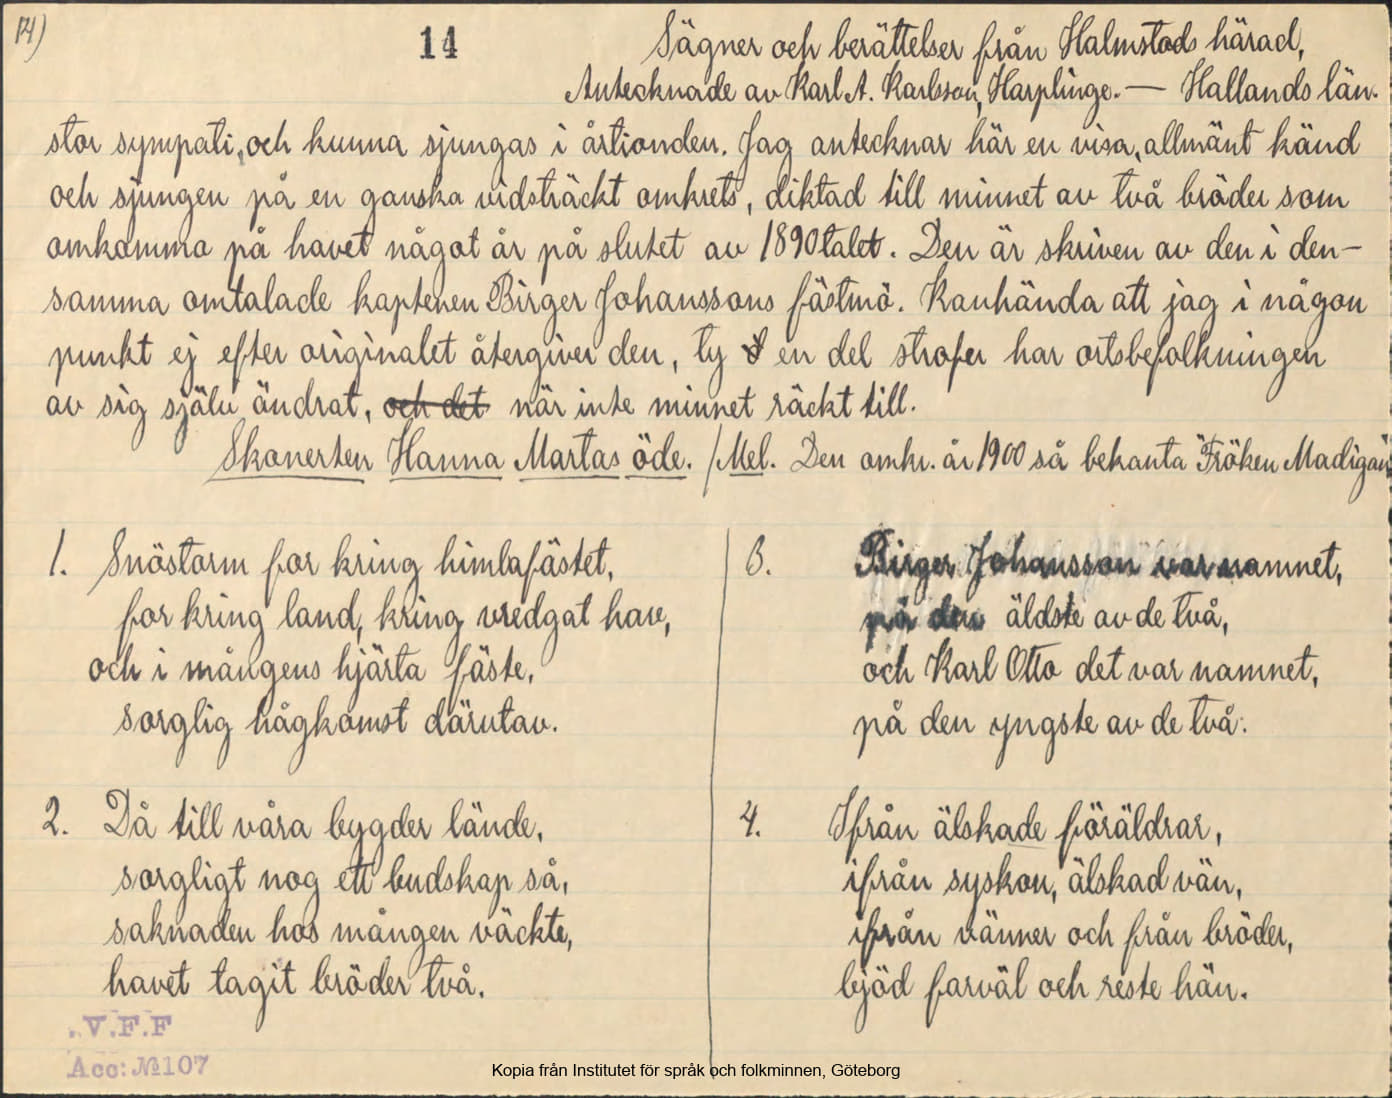 14)
14
Sägner och berättelser från Halmstads härad,
Antecknade av Karl A. Karlsson, Harplinge. — Hallands län.
stor sympati, och kunna sjungas i årtionden. Jag antecknar här en visa, allmänt känd
och sjungen på en ganska vidsträckt omkrets, diktad till minnet av två bröder som
omkommo på havet något år på slutet av 1890talet. Den är skriven av den i den-
samma omtalade kaptenen Birger Johanssons fästmö. Kanhända att jag i någon
punkt ej efter originalet återgiver den, ty en del strofer har ortsbefolkningen
av sig själv ändrat, och det när inte minnet räckt till.
Skonerten Hanna Martas öde. /Mel. Den omkr. år 1900 så bekanta "Fröken Madigan"
1. Snöstorm for kring himlafästet,
for kring land, kring vredgat hav,
och i mångens hjärta fäste,
sorglig hågkomst därutav.
2. Då till våra bygder lände,
sorgligt nog ett budskap så,
saknaden hos mången väckte,
havet tagit bröder två.
3. Birger Johansson var namnet,
på den äldste av de två,
och Karl Otto det var namnet,
på den yngste av de två.
4. Ifrån älskade föräldrar,
ifrån syskon, älskad vän,
ifrån vänner och från bröder,
bjöd farväl och reste hän.
.V.F.F
Acc: №107
Kopia från Institutet för språk och folkminnen, Göteborg